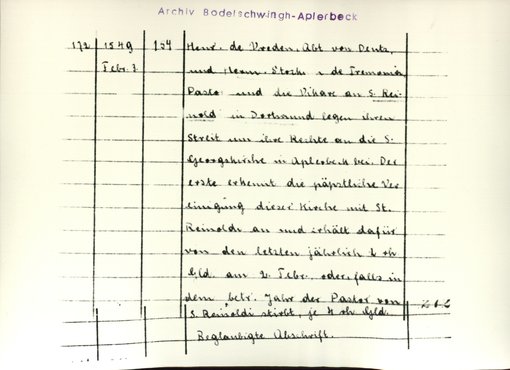 Archiv Bodelschwingh-Aplerbeck
172 1549 154 Henr. de Vreden, Abt von Deutz,
Febr. 2. und Herm. de Tremonia
Pastor und die Vikare an S. Rei-
noldi in Dortmund legen ihren
Streit um ihre Rechte an die S.
Georgskirche in Aplerbeck bei. Der
erste erkennt die päpstliche Ver
einigung dieser Kirche mit St.
Reinoldi an und erhält dafür
von den letzten jährlich rh
Gld. am 2. Febr., oder falls in
dem betr. Jahr der Pastor von
S. Reinoldi stirbt, je 4 rh Gld.
Beglaubigte Abschrift.